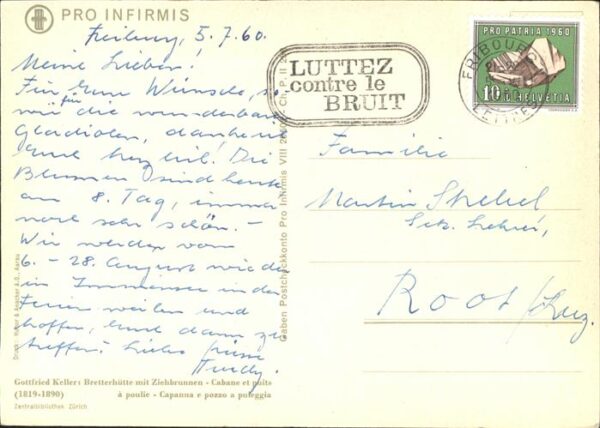 PRO INFIRMIS
Freiburg, 5.7.60.
Meine Lieben!
Für Eure Wünsche, so
wie für die wunderbaren
Gladiolen, danken
Euch herzlich! Die
Blumen sind heute
am 8. Tag, immer
noch sehr schön. –
Wir werden vom
6. – 28. August wieder
in Immensee in den
Ferien weilen und
hoffen, Euch dann zu
treffen. Liebe Grüsse
Gottfried Keller: Bretterhütte mit Ziehbrunnen - Cabane et puits
(1819-1890) à poulie - Capanna e pozzo a puleggia
Zentralbibliothek Zürich
Gaben Postcheckkonto Pro Infirmis VIII
LUTTEZ
contre le
BRUIT
PRO PATRIA 1960
10
HELVETIA
FRIBOURG
LETTRES
Familie
Martin Strebel
Sek. Lehrer,
Root/Luz.